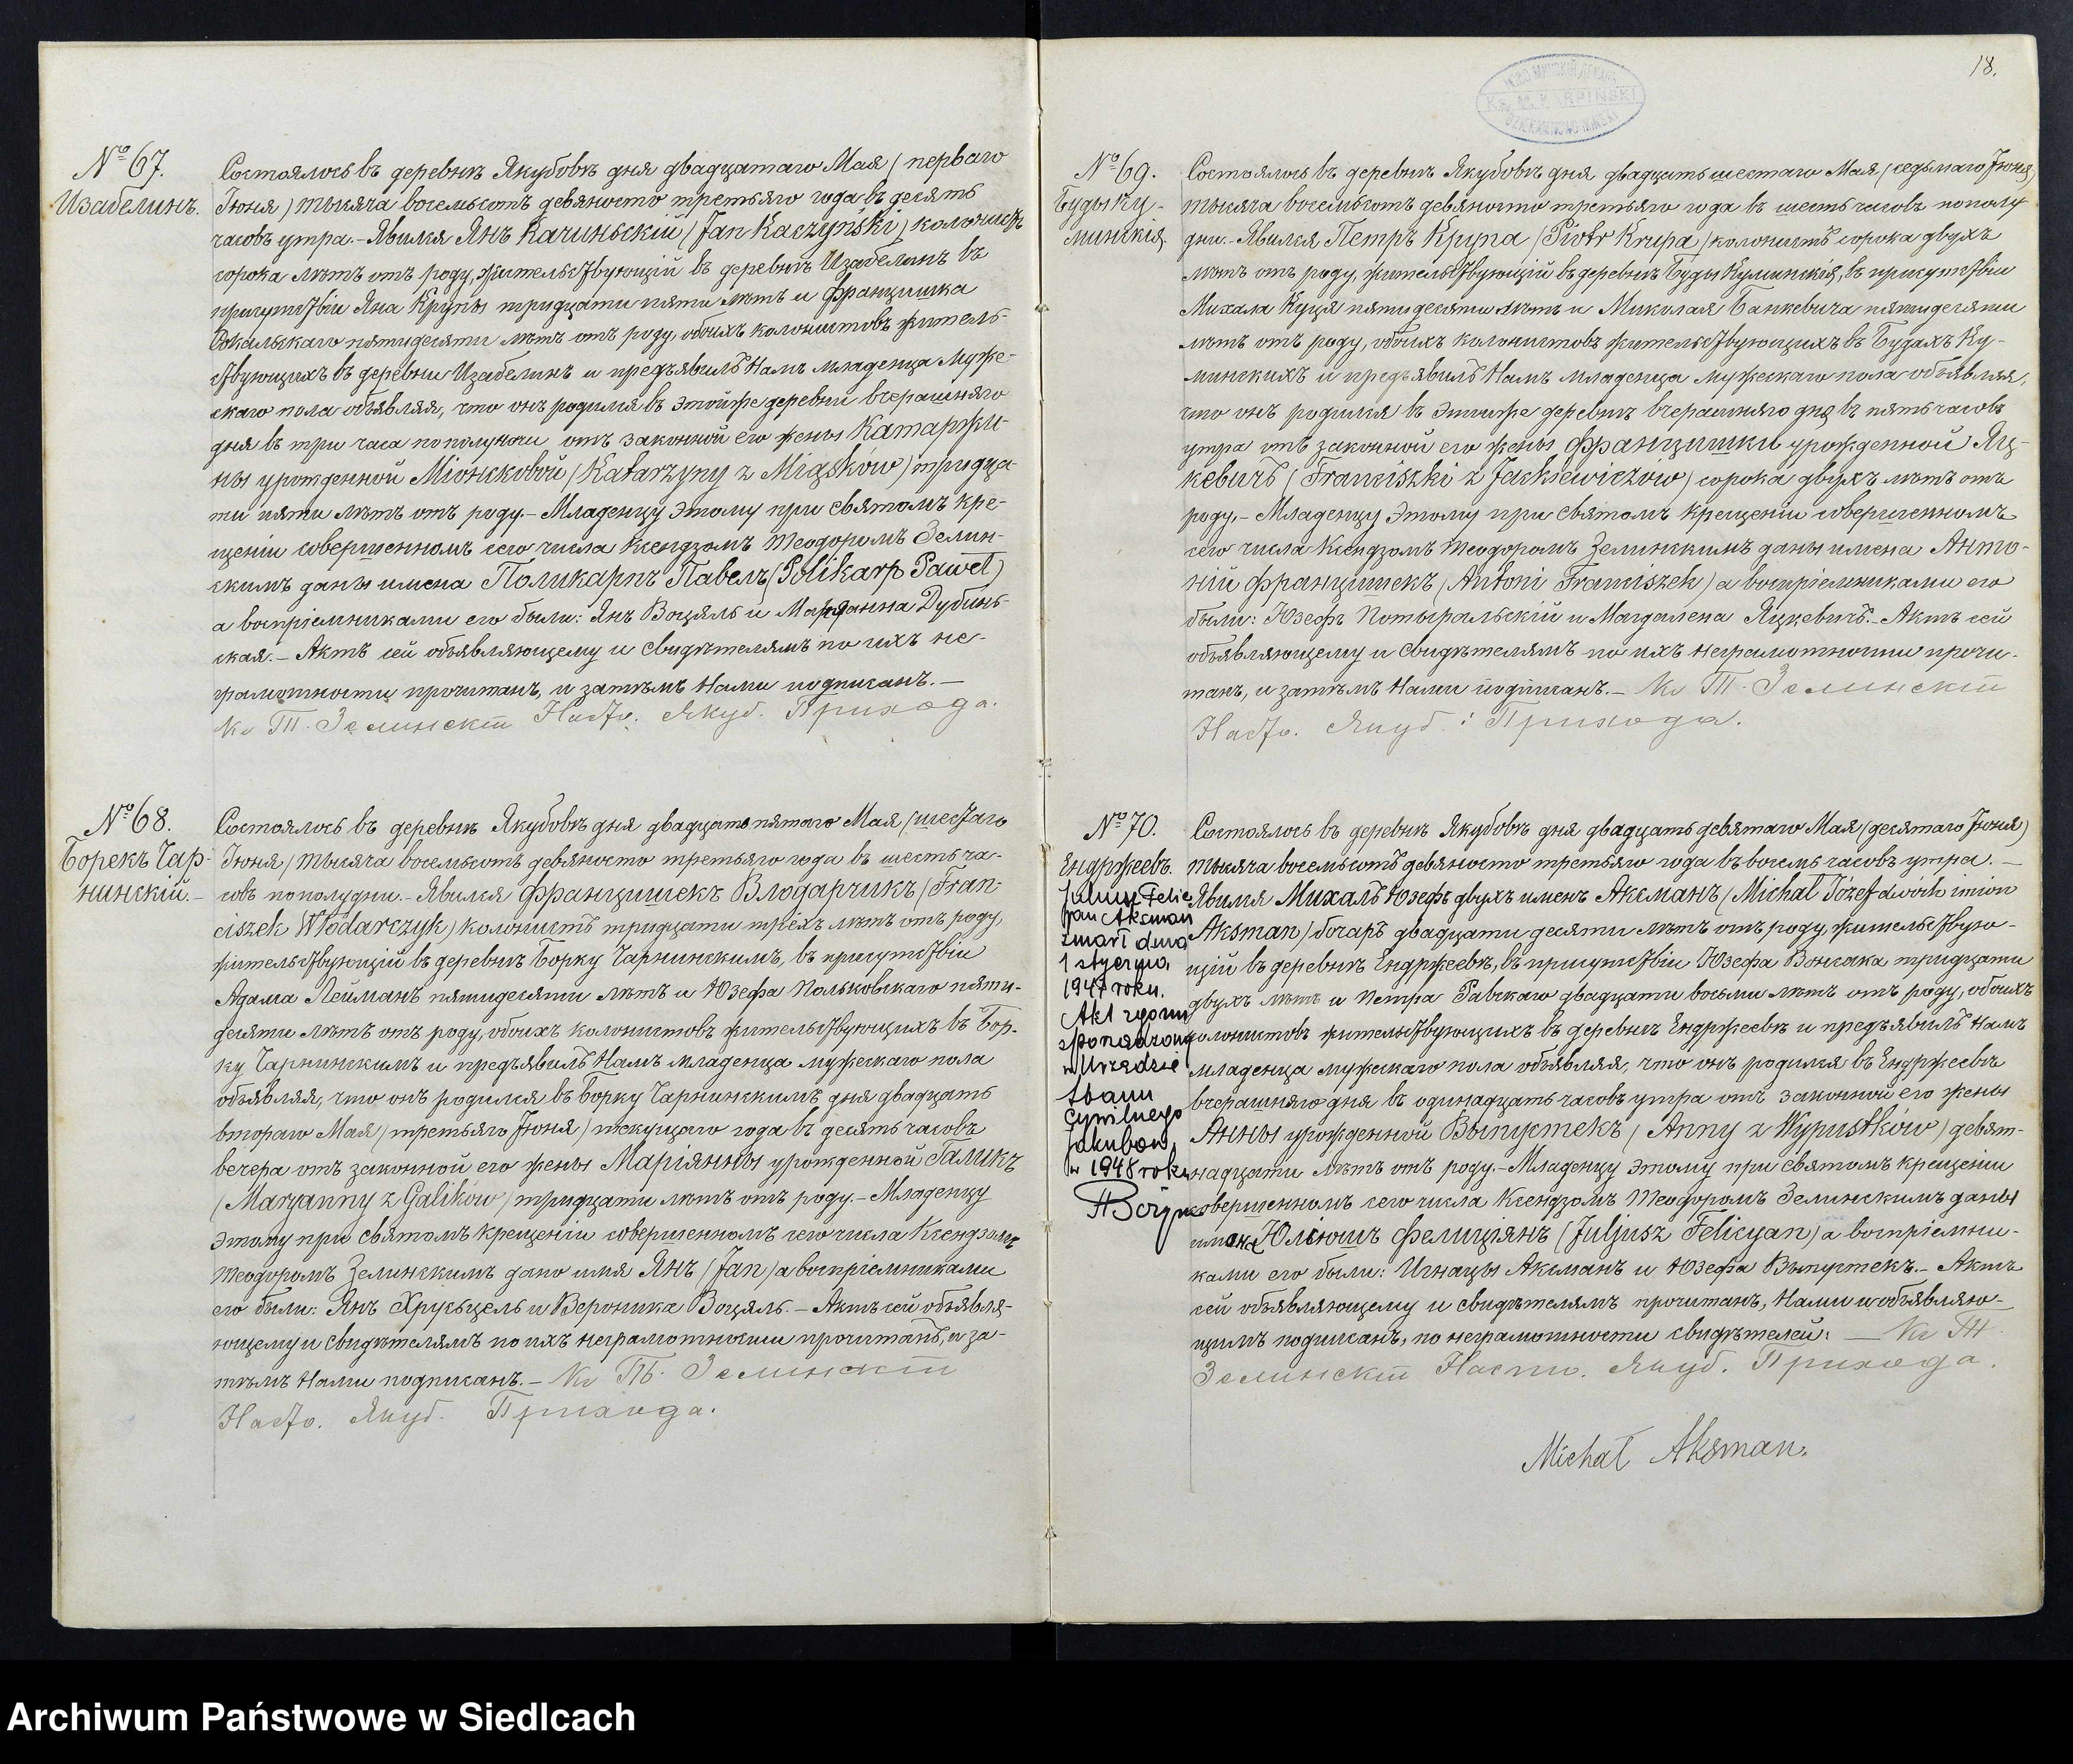 № 67.
Изабелинъ.
Состоялось въ деревнѣ Якубовѣ дня двадцатаго Мая (перваго
Іюня) тысяча восемьсотъ девяносто третьяго года въ десять
часовъ утра.- Явился Янъ Качиньскій (Jan Kaczyński) колонистъ
сорока лѣтъ отъ роду, жительствующій въ деревнѣ Изабелинъ въ
присутствіи Яна Крупы тридцати пяти лѣтъ и Францишка
Сокальскаго пятидесяти лѣтъ отъ роду, обоихъ колонистовъ житель-
ствующихъ въ деревни Изабелинъ и предъявилъ Намъ младенца муже-
скаго пола объявляя, что онъ родился въ этойже деревни вчерашняго
дня въ три часа пополуночи отъ законной его жены Катаржи-
ны урожденной Міонсковой (Katarzyny z Miąsków) тридца-
ти пяти лѣтъ отъ роду.- Младенцу этому при святомъ кре-
щеніи совершенномъ сего числа Ксендзомъ Теодоромъ Зелин-
скимъ даны имена Поликарпъ Павелъ (Polikarp Paweł)
а воспріемниками его были: Янъ Воцяль и Марянна Дубинь-
ская.- Актъ сей объявляющему и свидѣтелямъ по ихъ не-
грамотности прочитанъ, и затѣмъ Нами подписанъ.-
Кс Т. Зелинскій Наст. Якуб. Прихода.
№ 68.
Борекъ Чар-
нинскій.-
Состоялось въ деревнѣ Якубовѣ дня двадцать пятаго Мая (шестаго
Іюня) тысяча восемьсотъ девяносто третьяго года въ шесть ча-
совъ пополудни.- Явился Францишекъ Влодарчикъ (Fran-
ciszek Włodarczyk) колонистъ тридцати трехъ лѣтъ отъ роду,
жительствующій въ деревнѣ Борку Чарнинскимъ, въ присутствіи
Адама Лейманъ пятидесяти лѣтъ и Юзефа Польковскаго пяти-
десяти лѣтъ отъ роду, обоихъ колонистовъ жительствующихъ въ Бор-
ку Чарнинскимъ и предъявилъ Намъ младенца мужескаго пола
объявляя, что онъ родился въ Борку Чарнинскимъ дня двадцать
втораго Мая (третьяго Іюня) текущаго года въ десять часовъ
вечера отъ законной его жены Маріянны урожденной Галикъ
(Maryanny z Galików) тридцати лѣтъ отъ роду.- Младенцу
этому при святомъ крещеніи совершенномъ сего числа Ксендзомъ
Теодоромъ Зелинскимъ дано имя Янъ (Jan) а воспріемниками
его были: Янъ Хрусьцель и Вероника Воцяль.- Актъ сей объявля-
ющему и свидѣтелямъ по ихъ неграмотности прочитанъ, и за-
тѣмъ Нами подписанъ.- Кс Т. Зелинскій
Наст. Якуб. Прихода.
18.
№ 69.
Буды Ку-
минскія
Состоялось въ деревнѣ Якубовѣ дня двадцать шестаго Мая (седьмаго Іюня)
тысяча восемьсотъ девяносто третьяго года въ шесть часовъ пополу
дни.- Явился Петръ Крупа (Piotr Krupa) колонистъ сорока двухъ
лѣтъ отъ роду, жительствующій въ деревнѣ Буды Куминскія, въ присутствіи
Михала Куця пятидесяти лѣтъ и Миколая Банкевича пятидесяти
лѣтъ отъ роду, обоихъ колонистовъ жительствующихъ въ Будахъ Ку-
минскихъ и предъявилъ Намъ младенца мужескаго пола объявляя,
что онъ родился въ этойже деревнѣ вчерашняго дня въ пять часовъ
утра отъ законной его жены Францишки урожденной Яц-
кевичъ (Franciszki z Jackiewiczów) сорока двухъ лѣтъ отъ
роду.- Младенцу этому при святомъ крещеніи совершенномъ
сего числа Ксендзомъ Теодоромъ Зелинскимъ даны имена Анто-
ній Францишекъ (Antoni Franciszek) а воспріемниками его
были: Юзефъ Потыральскій и Магдалена Яцкевичъ.- Актъ сей
объявляющему и свидѣтелямъ по ихъ неграмотности прочи-
танъ, и затѣмъ Нами подписанъ.- Кс Т. Зелинскій
Наст. Якуб. Прихода.
№ 70.
Ендржеевъ.
Juliusz Felic
Jan Aksman
zmarł dnia
1 stycznia
1947 roku.
Akt zgonu
sporządzony
w Urzędzie
Stanu
Cywilnego
Jakubów,
w 1948 roku
Состоялось въ деревнѣ Якубовѣ дня двадцать девятаго Мая (десятаго Іюня)
тысяча восемьсотъ девяносто третьяго года въ восемь часовъ утра.-
Явился Михалъ Юзефъ двухъ именъ Аксманъ (Michał Józef dwóch imion
Aksman) бочаръ двадцати десяти лѣтъ отъ роду, жительствую-
щій въ деревнѣ Ендржеевѣ, въ присутствіи Юзефа Вонсака тридцати
двухъ лѣтъ и Петра Равскаго двадцати восьми лѣтъ отъ роду, обоихъ
колонистовъ жительствующихъ въ деревнѣ Ендржеевѣ и предъявилъ Намъ
младенца мужескаго пола объявляя, что онъ родился въ Ендржеевѣ
вчерашняго дня въ одинадцать часовъ утра отъ законной его жены
Анны урожденной Выпустекъ (Anny z Wypustków) девят-
надцати лѣтъ отъ роду.- Младенцу этому при святомъ крещеніи
совершенномъ сего числа Ксендзомъ Теодоромъ Зелинскимъ даны
имена Юліюшъ Фелиціянъ (Juljusz Felicyan) а воспріемни-
ками его были: Игнацы Аксманъ и Юзефа Выпустекъ.- Актъ
сей объявляющему и свидѣтелямъ прочитанъ, Нами и объявляю-
щимъ подписанъ, по неграмотности свидѣтелей.- Кс Т.
Зелинскій Наст. Якуб. Прихода.
Michał Aksman.
Archiwum Państwowe w Siedlcach